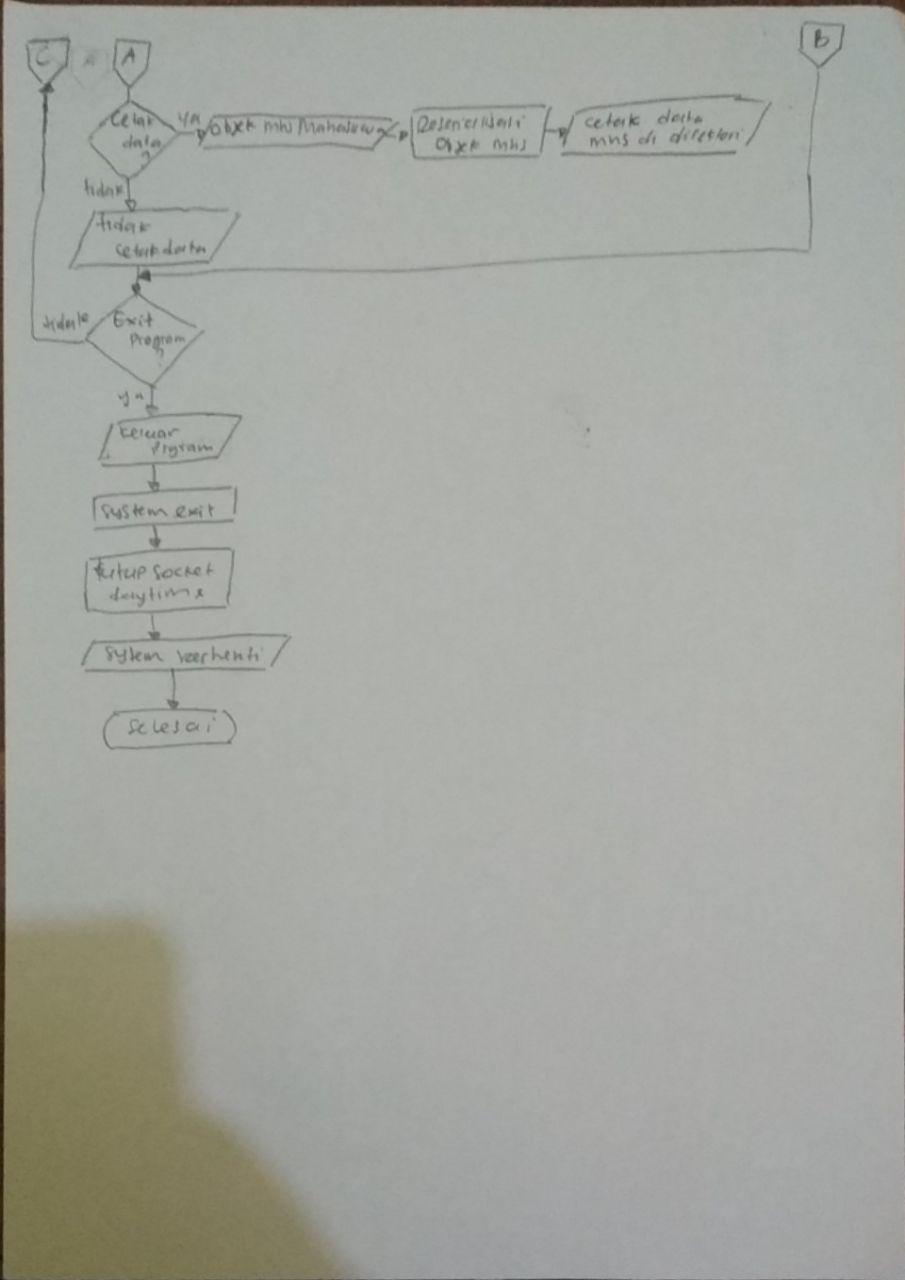 C
A
B
Cetak
data
?
ya
Objek mhs Mahasiswa
Deserialisasi
Objek mhs
cetak data
mhs di direktori
tidak
tidak
cetak data
tidak
Exit
Program
?
ya
keluar
Program
System exit
tutup socket
daytime
System berhenti
Selesai